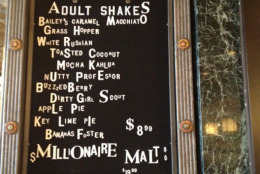 ADULT SHAKES
BAILEY'S CARAMEL MACCHIATO
GRASS HOPPER
WHITE RUSSIAN
TOASTED COCONUT
MOCHA KAHLUA
NUTTY PROFESSOR
BUZZEDBERRY
DIRTY GIRL SCOUT
APPLE PIE
KEY LIME PIE
$8.99
BANANAS FOSTER
$MILLIONAIRE MALT